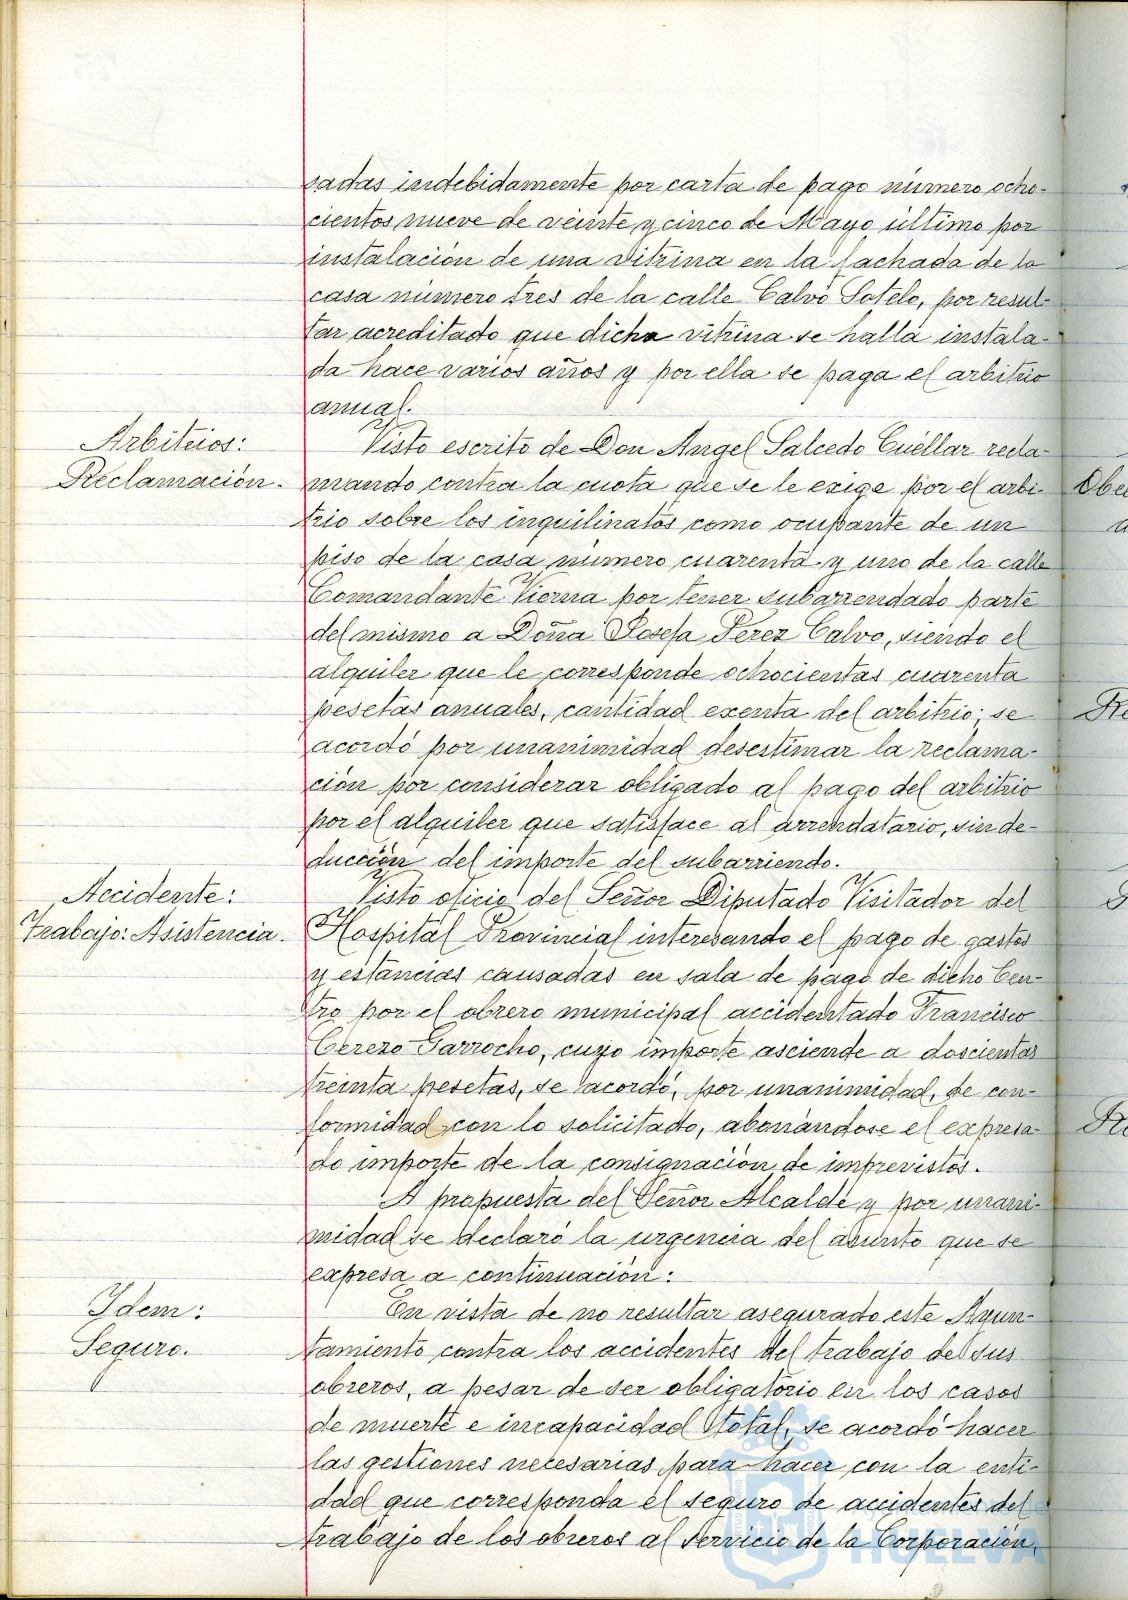 sadas indebidamente por carta de pago número ocho-
cientos nueve de veinte y cinco de Mayo último por
instalación de una vitrina en la fachada de la
casa número tres de la calle Calvo Sotelo, por resul-
tar acreditado que dicha vitrina se halla instala-
da hace varios años y por ella se paga el arbitrio
anual.
Arbitrios:
Reclamación.
Visto escrito de Don Angel Salcedo Cuéllar recla-
mando contra la cuota que se le exige por el arbi-
trio sobre los inquilinatos como ocupante de un
piso de la casa número cuarenta y uno de la calle
Comandante Vierna por tener subarrendado parte
del mismo a Doña Josefa Perez Calvo, siendo el
alquiler que le corresponde ochocientas cuarenta
pesetas anuales, cantidad exenta del arbitrio; se
acordó por unanimidad desestimar la reclama-
ción por considerar obligado al pago del arbitrio
por el alquiler que satisface al arrendatario, sin de-
ducción del importe del subarriendo.
Accidente:
Trabajo: Asistencia.
Visto oficio del Señor Diputado Visitador del
Hospital Provincial interesando el pago de gastos
y estancias causadas en sala de pago de dicho Cen-
tro por el obrero municipal accidentado Francisco
Cerezo Garrocho, cuyo importe asciende a doscientas
treinta pesetas, se acordó, por unanimidad, de con-
formidad con lo solicitado, abonándose el expresa-
do importe de la consignación de imprevistos.
A propuesta del Señor Alcalde y por unani-
midad se declaró la urgencia del asunto que se
expresa a continuación:
Idem:
Seguro.
En vista de no resultar asegurado este Ayun-
tamiento contra los accidentes del trabajo de sus
obreros, a pesar de ser obligatorio en los casos
de muerte e incapacidad total, se acordó hacer
las gestiones necesarias para hacer con la enti-
dad que corresponda el seguro de accidentes del
trabajo de los obreros al servicio de la Corporación,
HUELVA